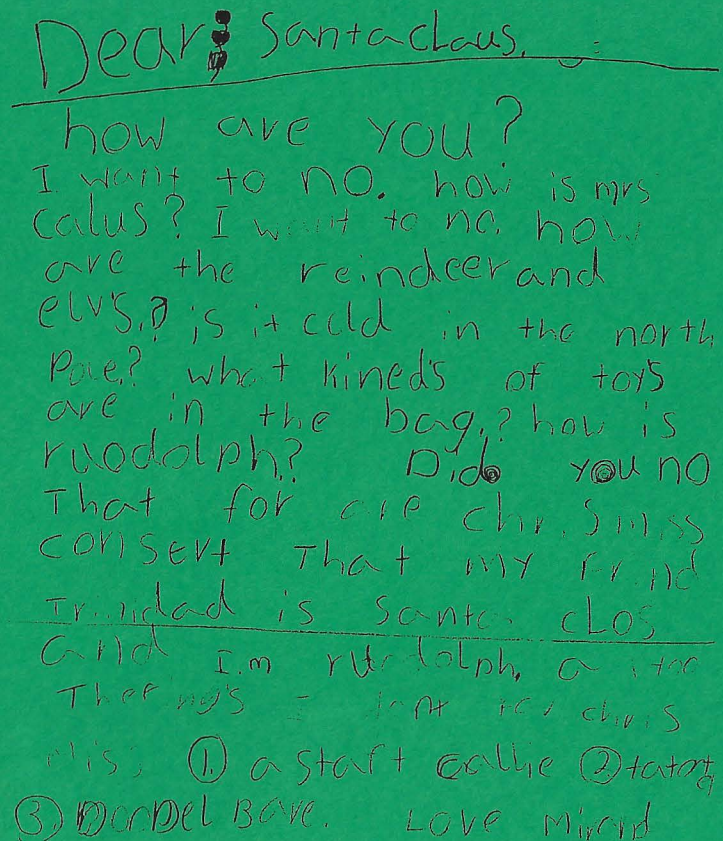 Dear, Santa claus.
how are you?
I want to no. how is mrs
calus? I want to no. how
are the reindeer and
elv's.? is it cold in the north
Pole? what kined's of toys
are in the bag.? how is
ruodolph? Did you no
That for are chrismiss
consert That my frind
Trinidad is Santa clos
and I.m rudolph.
Ther
① a start callie ②
③ Love